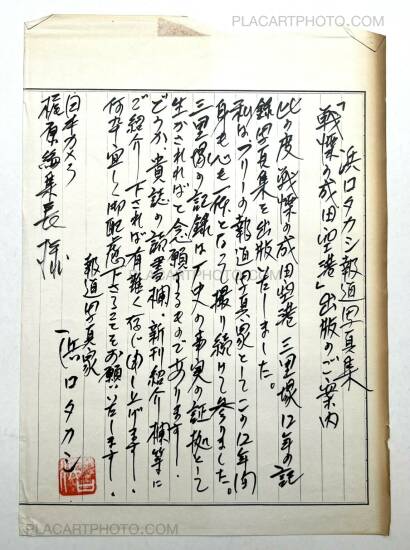 PLACARTPHOTO.COM
浜口タカシ報道写真集
「戦慄の成田空港」出版のご案内
此の度 戦慄の成田空港 三里塚12年の記
録写真集を出版いたしました。
私はフリーの報道写真家としてこの12年間
身も心も一体となって撮り続けて参りました。
三里塚の記録は一つ史の事実の証拠として
生かされればと念願するものであります。
どうか貴誌の読書欄・新刊紹介欄等に
ご紹介下されば有難く存じ申し上げます。
何卒宜しく御配慮下さることをお願い致します。
報道写真家
浜口タカシ
日本カメラ
梶原編集長様
PLACARTPHOTO.COM
PLACARTPHOTO.COM